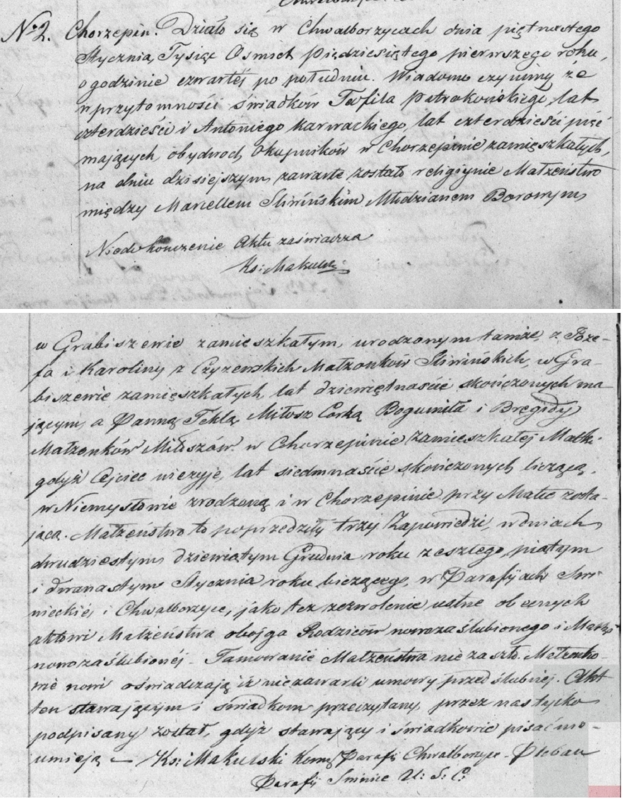 No 2. Chorzepin. Działo się w Chwalborzycach dnia piętnastego
Stycznia, Tysiąc Osmset Pięździesiątego pierwszego roku,
o godzinie czwartéj po południu. Wiadomo czyniemy że
w przytomności świadków Teofila Petrakońskiego, lat
czterdzieści i Antoniego Karwackiego, lat czterdzieści pięć
mających obydwoch Okupników w Chorzepinie zamieszkałych,
na dniu dzisiejszym zawarte zostało religijnie Małżeństwo
między Marcellem Sliwińskim Młodzianem Borowym
Niedokończenie Aktu zaświacza
Ks: Makulski
w Grabiszewie zamieszkałym, urodzonym tamże, z Joze-
fa i Karoliny z Czyzewskich Małżonków Sliwińskich, w Gra-
biszewie zamieszkałych, lat dziewiętnaście skończonych ma-
jącym, a Panną Teklą Miłosz Córką Bogumiła i Brygidy
Małżonków Miłoszów w Chorzepinie zamieszkałej Matki
gdyż Ojciec nieżyje, lat siedmnaście skończonych liczącą,
w Niemysłowie zrodzoną i w Chorzepinie przy Matce zosta-
jącą. Małżeństwo to poprzedziły trzy Zapowiedzi, w dniach
dwudziestym dziewiątym Grudnia roku zeszłego, piątym
i dwunastym Stycznia roku bieżącego, w Parafijach
i Chwalborzyce, jako też zezwolenie ustne obecnych
aktowi Małżeństwa obojga Rodziców nowozaślubionego i Matki
nowozaślubionéj. Tamowanie Małżeństwa nie zaszło. Małżonko-
wie nowi oświadczają iż niezawarli umowy przedślubnej. Akt
ten stawającym i świadkom przeczytany, przez nas tylko
podpisany został, gdyż stawający i świadkowie pisać nie-
umieją – Ks: Makulski Komę. Parafi Chwalborzyce – Pleban
Parafij Sminic U. S. C.